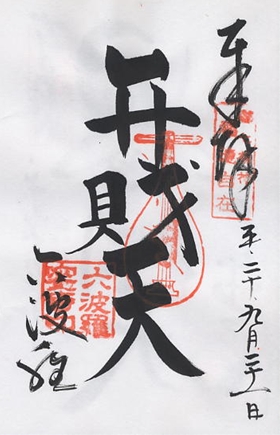 奉拝
平・二十・九月二十一日
弁財天
六波羅
六波羅